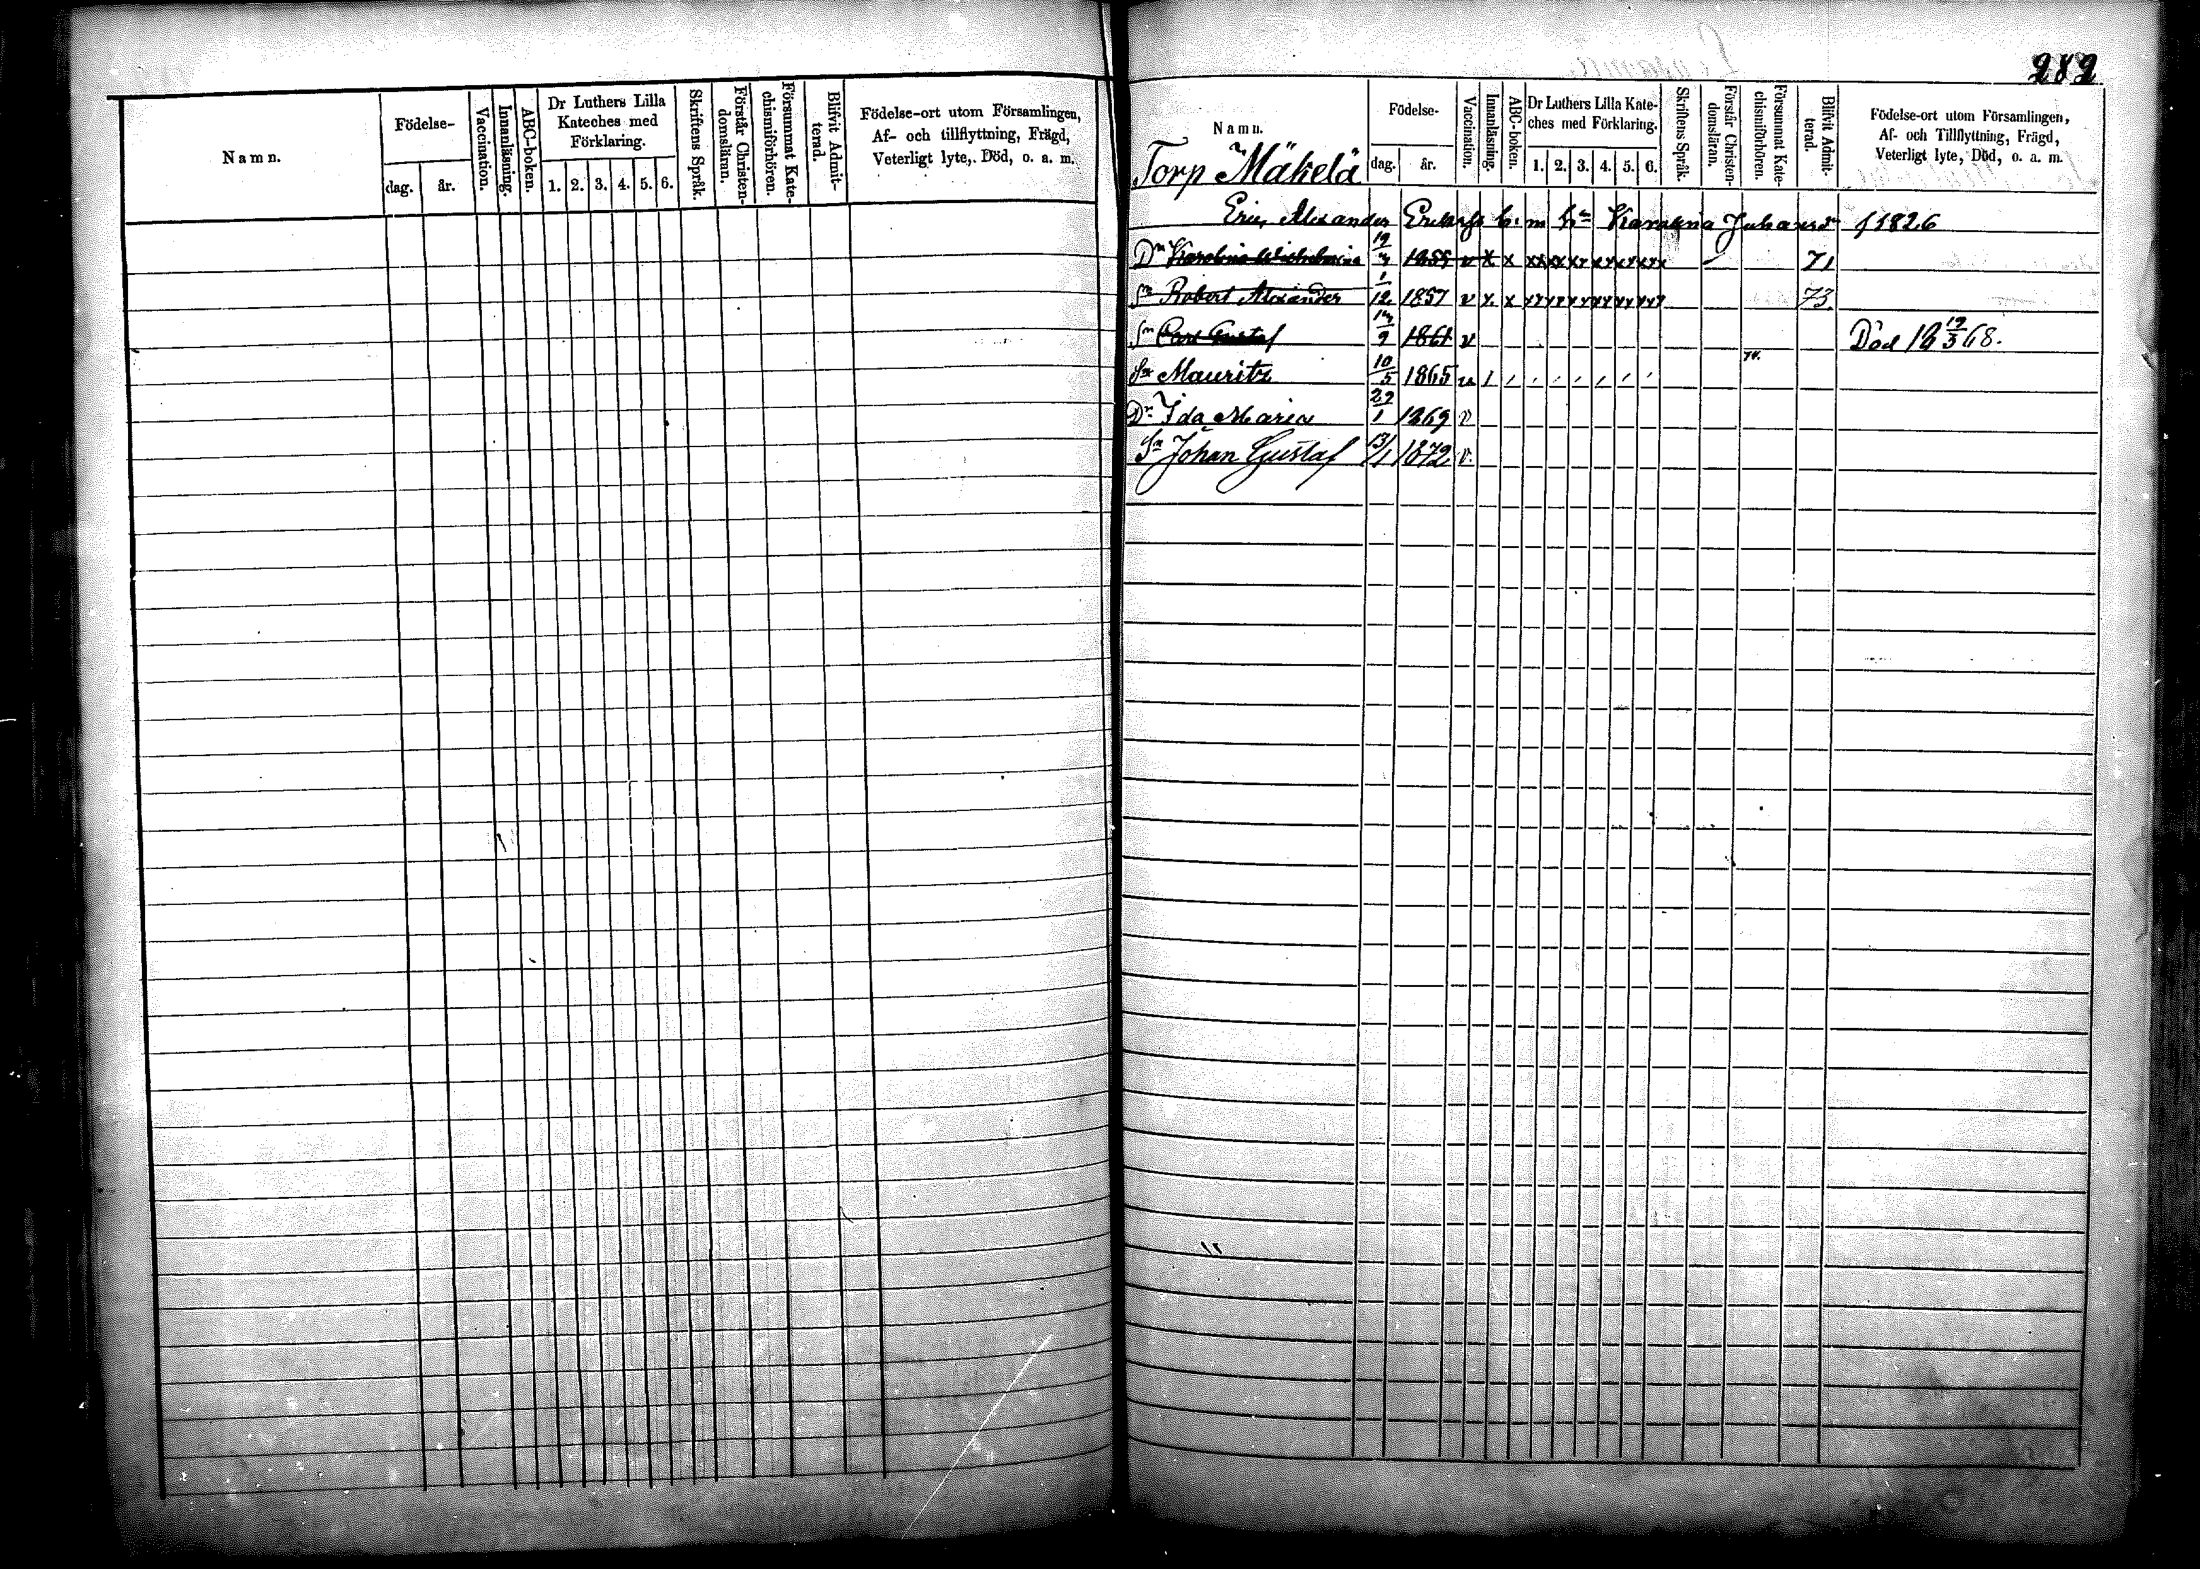 282
Namn.
Födelse-
dag.
år.
Vaccination.
Innanläsning.
ABC-boken.
Dr Luthers Lilla
Kateches med
Förklaring.
1. 2. 3. 4. 5. 6.
Skriftens Språk.
Förstår Christen-
domsläran.
Försummat Kate-
chismiförhören.
Blifvit Admit-
terad.
Födelse-ort utom Församlingen,
Af- och tillflyttning, Frägd,
Veterligt lyte, Död, o. a. m.
Namn.
Torp Mäkelä
Födelse-
dag.
år.
Vaccination.
Innanläsning.
ABC-boken.
Dr Luthers Lilla Kate-
ches med Förklaring.
1. 2. 3. 4. 5. 6.
Skriftens Språk.
Förstår Christen-
domsläran.
Försummat Kate-
chismiförhören.
Blifvit Admit-
terad.
Födelse-ort utom Församlingen,
Af- och Tillflyttning, Frägd,
Veterligt lyte, Död, o. a. m.
Alexander Karolina f 1826
Dn Karolina Wilhelmina 1855 v x x 71
Sn Robert Alexander 1/12 1857 v x x 73
Sn Carl Gustaf 1861 v Död 68.
74.
Sn Mauritz 10/5 1865
Dn Ida Maria 1869 v
Sn Johan Gustaf 13/1 1872 v.